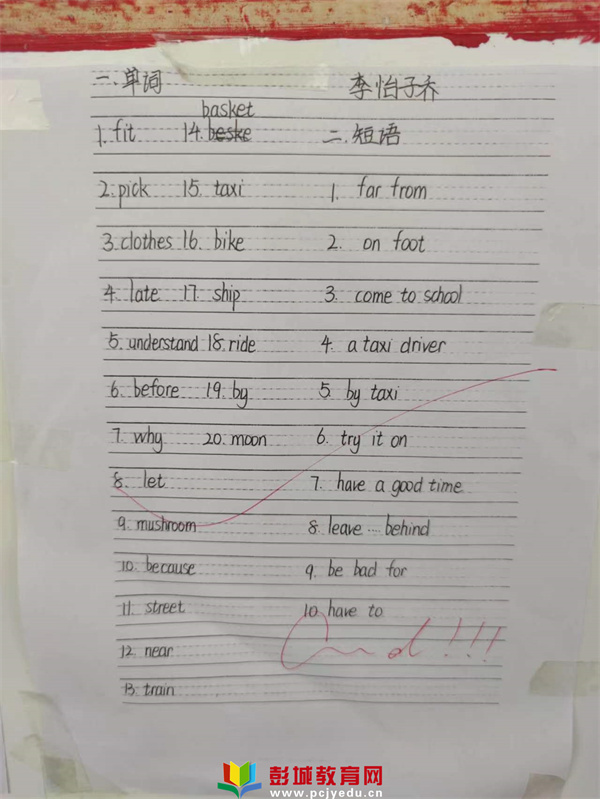 一.单词 李怡子乔
basket
1. fit 14. beske 二.短语
2. pick 15. taxi 1. far from
3. clothes 16. bike 2. on foot
4. late 17. ship 3. come to school
5. understand 18. ride 4. a taxi driver
6. before 19. by 5. by taxi
7. why 20. moon 6. try it on
8. let 7. have a good time
9. mushroom 8. leave … behind
10. because 9. be bad for
11. street 10. have to
12. near Good!!!
13. train
彭城教育网
www.pcjyedu.cn